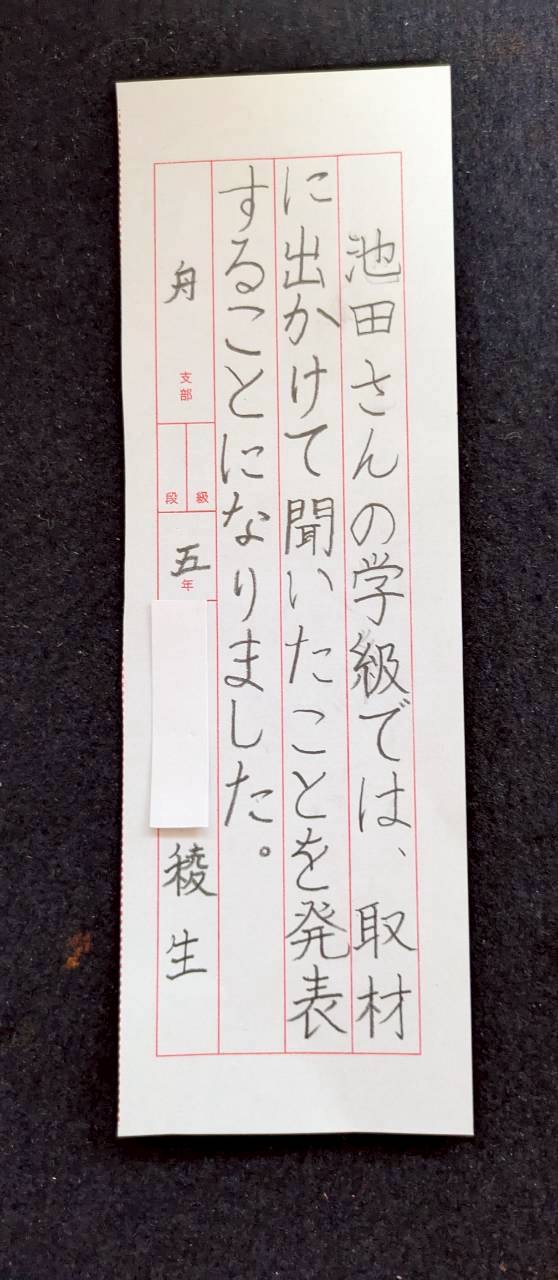 池田さんの学級では、取材
に出かけて聞いたことを発表
することになりました。
舟支部
級
段
五年
稜生